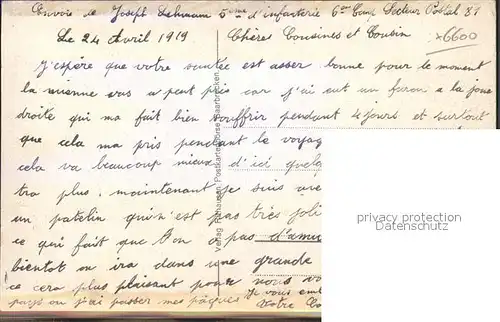 Envoie de Joseph Lehmann 5ème d'infanterie 6ème Camp Secteur Postal 81
Le 24 Avril 1919 Chères Cousines et Cousin
x6600
J'espère que votre santée est asser bonne pour le moment
la mienne vas a peut près car j'ai eut un furon a la joue
droite qui ma fait bien souffrir pendant 4 jours et surtout
que cela ma pris pendant le voyag
cela va beaucoup mieux d'ici quelq
tra plus, maintenant je suis
un patelin qu'n'est pas très joli
ce qui fait que l'on a pas d'amu
bientot on ira dans une grande
ce cera plus plaisant pour nous vo
pays ou j'ai passer mes pâques Je vous em
Votre Co
Verlag Saarbrücken
privacy protection
Datenschutz